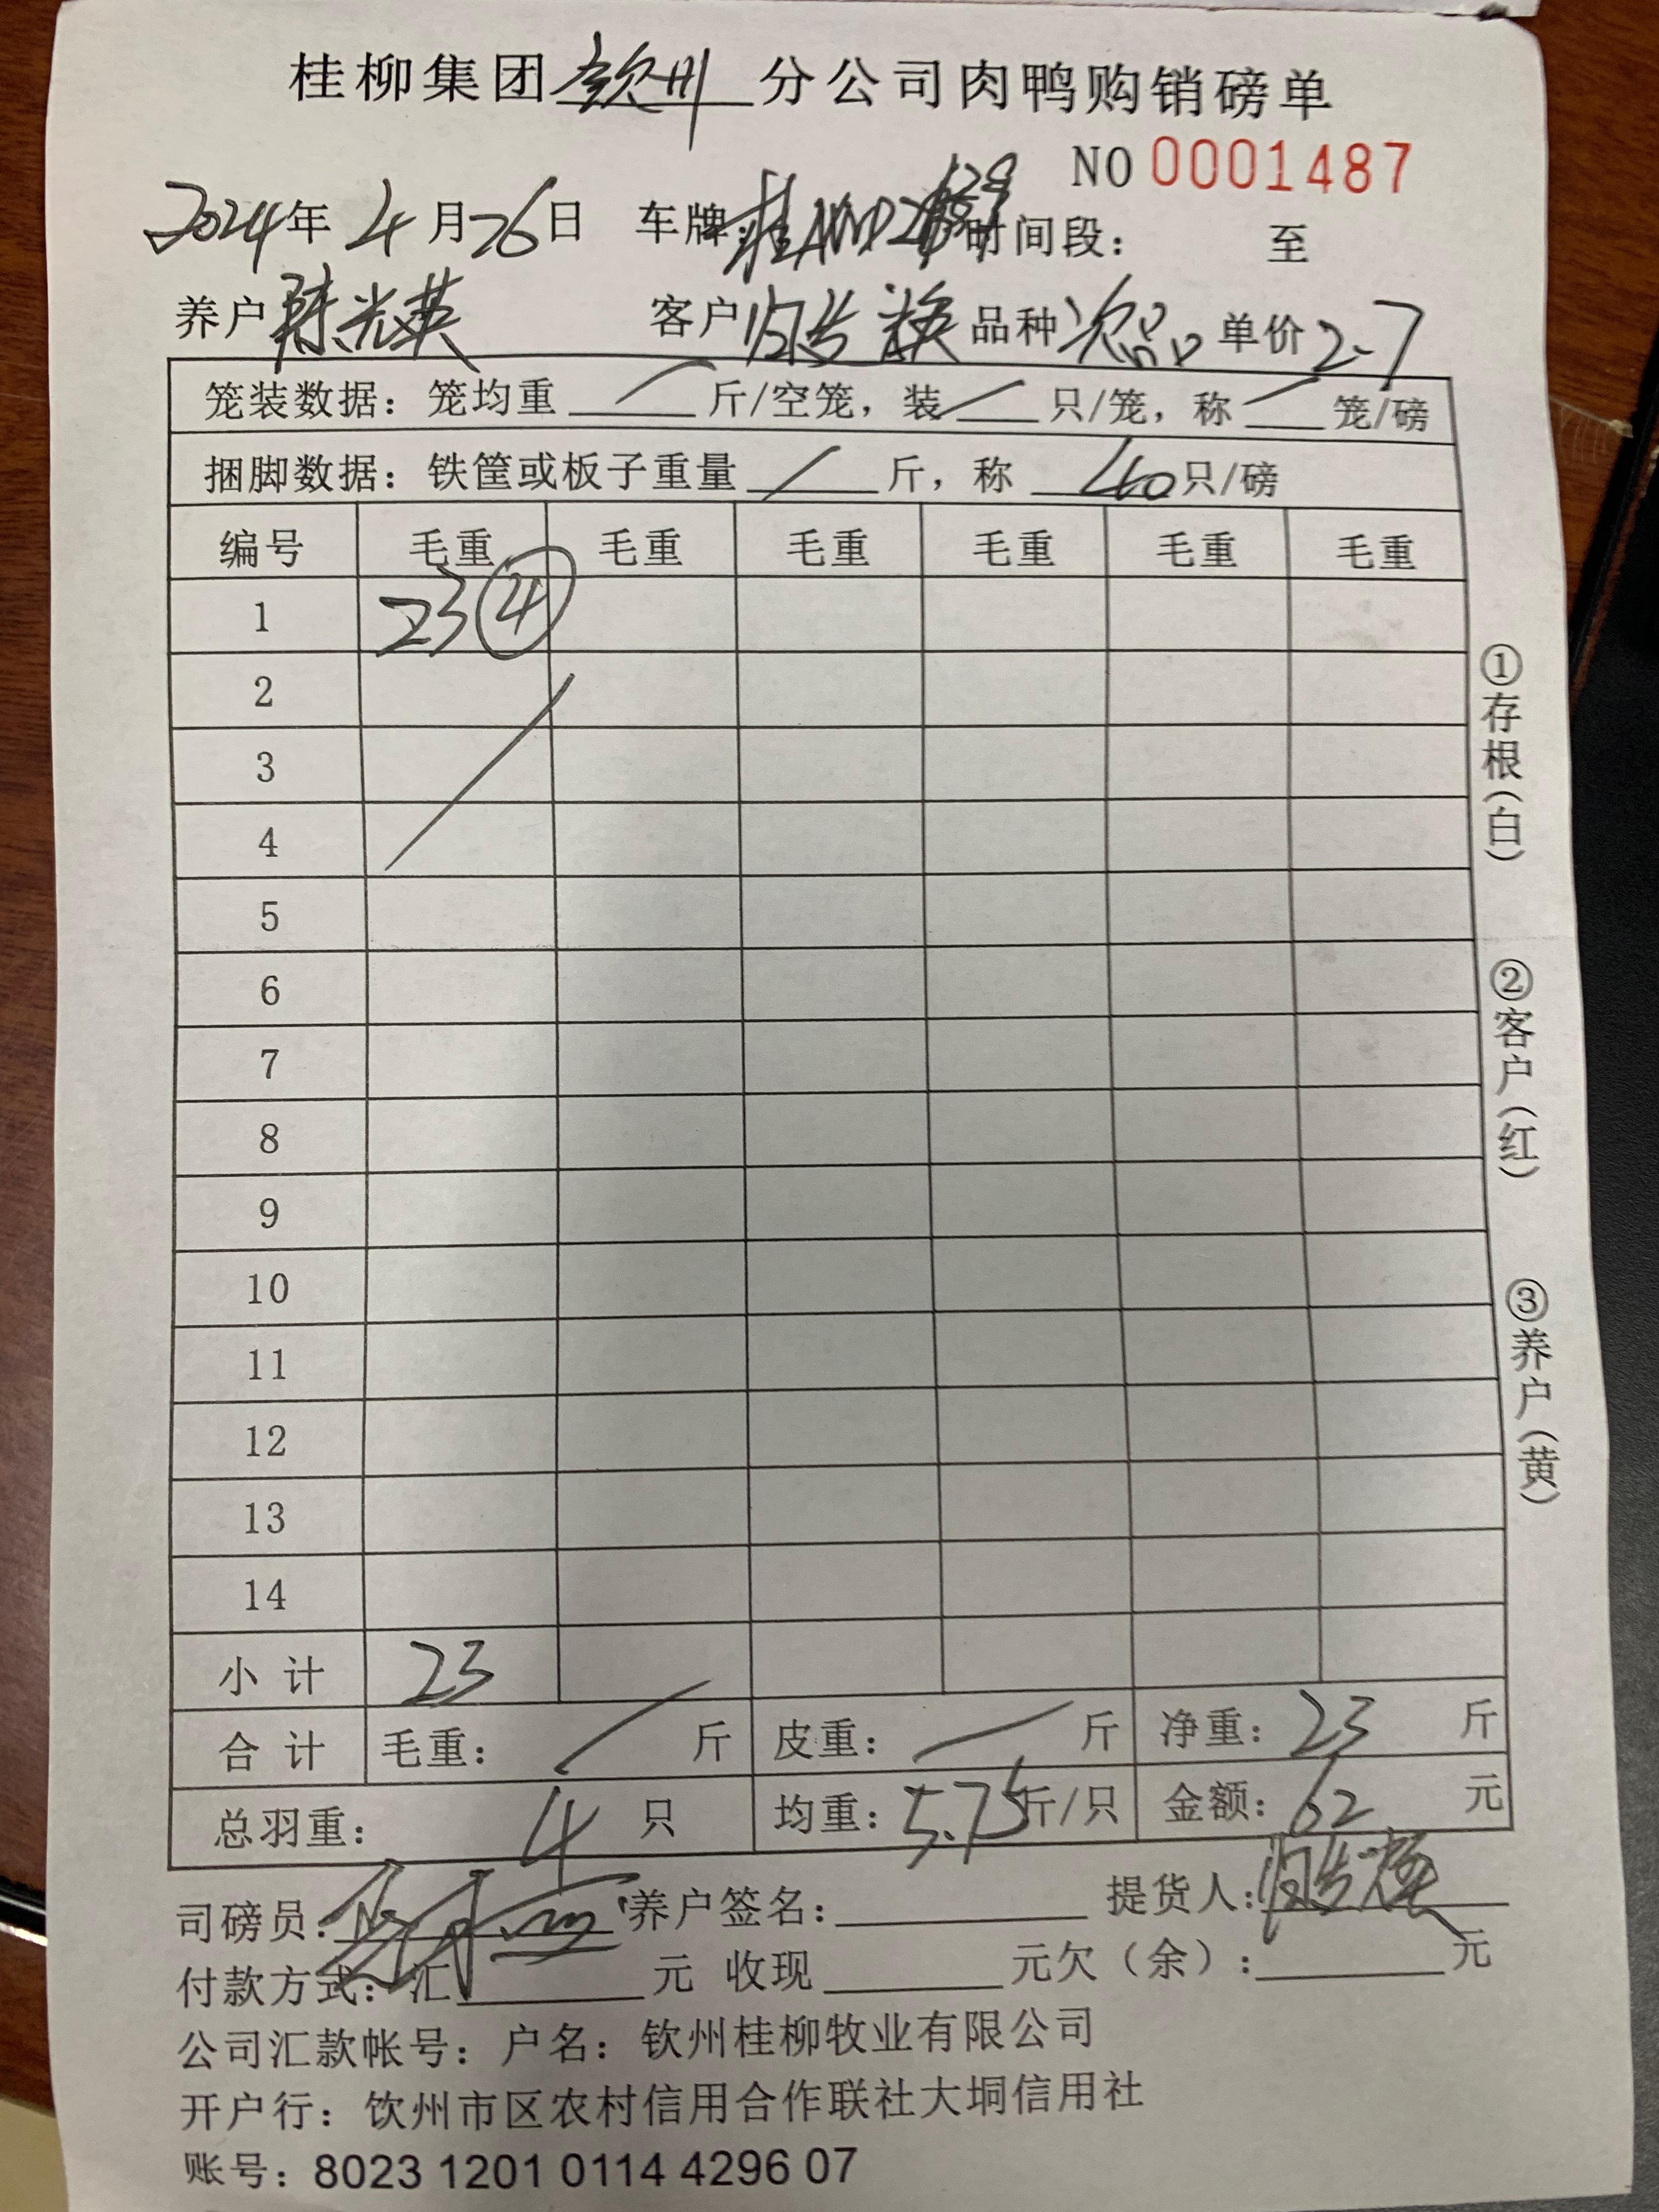 桂柳集团钦州分公司肉鸭购销磅单
NO 0001487
2024年4月26日 车牌: 时间段: 至
养户陈光英 客户 品种次品 单价2.7
笼装数据:笼均重/斤/空笼,装/只/笼,称/笼/磅
捆脚数据:铁筐或板子重量/斤,称40只/磅
编号 毛重 毛重 毛重 毛重 毛重 毛重
1 23 ④
2
3
4
5
6
7
8
9
10
11
12
13
14
小计 23
合计 毛重:/斤 皮重:/斤 净重:23斤
总羽重:4只 均重:5.75斤/只 金额:62元
司磅员: 养户签名: 提货人:
付款方式:汇 元 收现 元欠(余): 元
公司汇款帐号:户名:钦州桂柳牧业有限公司
开户行:钦州市区农村信用合作联社大垌信用社
账号:8023 1201 0114 4296 07
①存根(白)
②客户(红)
③养户(黄)